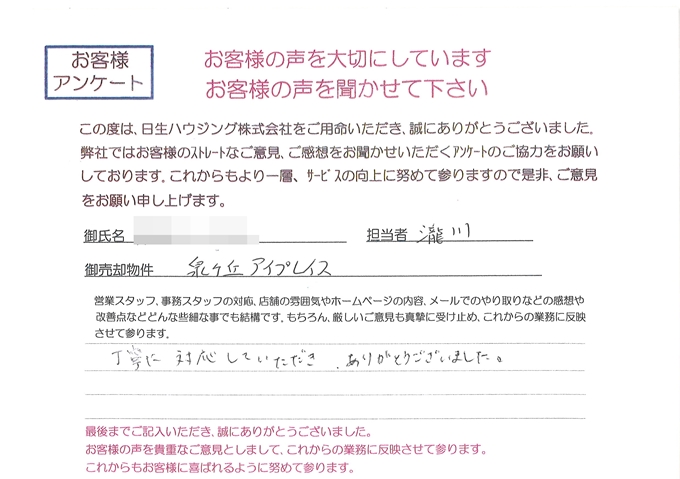 お客様
アンケート
お客様の声を大切にしています
お客様の声を聞かせて下さい
この度は、日生ハウジング株式会社をご用命いただき、誠にありがとうございました。
弊社ではお客様のｽﾄﾚｰﾄなご意見、ご感想をお聞かせいただくｱﾝｹｰﾄのご協力をお願い
しております。これからもより一層、ｻｰﾋﾞｽの向上に努めて参りますので是非、ご意見
をお願い申し上げます。
御氏名 担当者 瀧川
御売却物件 泉ヶ丘アイプレイス
営業スタッフ、事務スタッフの対応、店舗の雰囲気やホームページの内容、メールでのやり取りなどの感想や
改善点などどんな些細な事でも結構です。もちろん、厳しいご意見も真摯に受け止め、これからの業務に反映
させて参ります。
丁寧に対応していただき、ありがとうございました。
最後までご記入いただき、誠にありがとうございました。
お客様の声を貴重なご意見としまして、これからの業務に反映させて参ります。
これからもお客様に喜ばれるように努めて参ります。